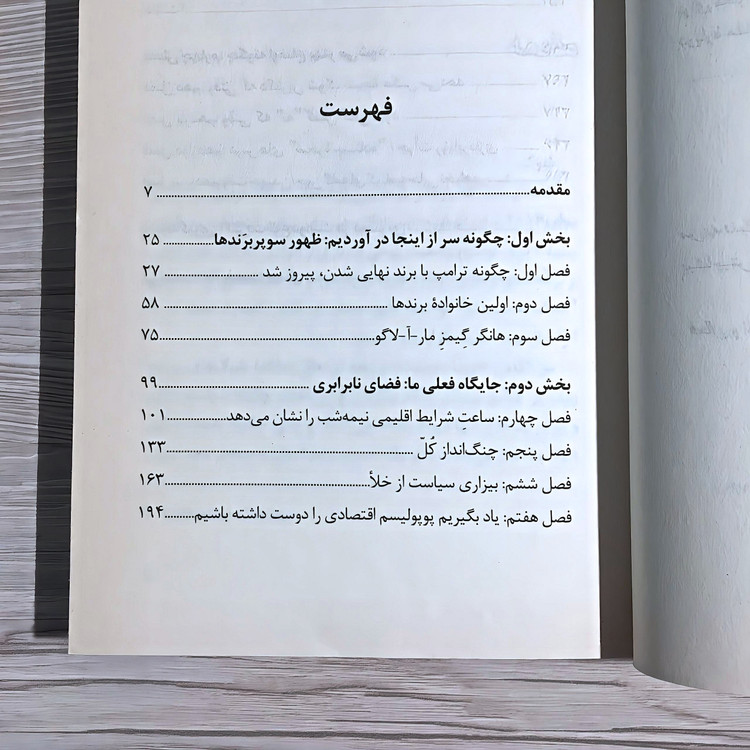 فهرست
مقدمه ........ ۷
بخش اول: چگونه سر از اینجا در آوردیم: ظهور سوپربرَندها ........ ۲۵
فصل اول: چگونه ترامپ با برند نهایی شدن، پیروز شد ........ ۲۷
فصل دوم: اولین خانوادهٔ برندها ........ ۵۸
فصل سوم: هانگر گِیمزِ مار-آ-لاگو ........ ۷۵
بخش دوم: جایگاه فعلی ما: فضای نابرابری ........ ۹۹
فصل چهارم: ساعتِ شرایط اقلیمی نیمه‌شب را نشان می‌دهد ........ ۱۰۱
فصل پنجم: چنگ‌انداز کُلّ ........ ۱۳۳
فصل ششم: بیزاری سیاست از خلأ ........ ۱۶۳
فصل هفتم: یاد بگیریم پوپولیسم اقتصادی را دوست داشته باشیم ........ ۱۹۴